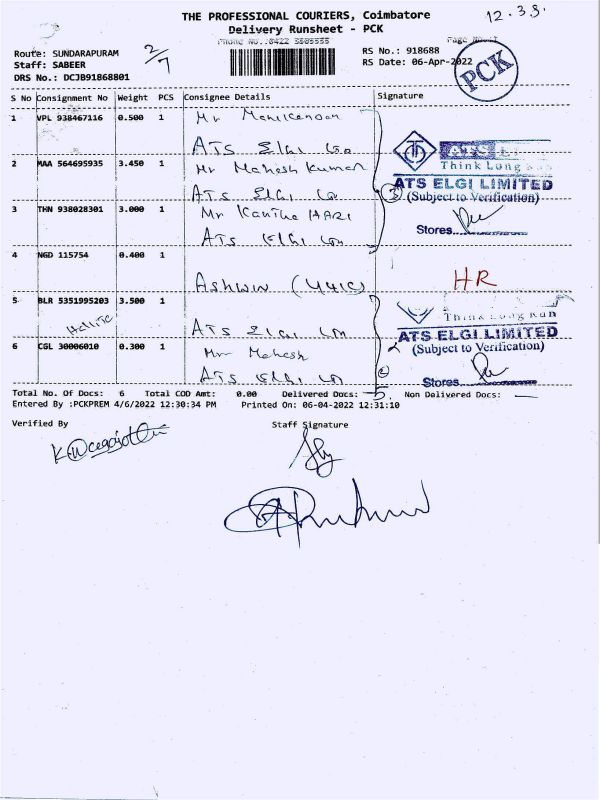 THE PROFESSIONAL COURIERS, Coimbatore
12.38.
Delivery Runsheet - PCK
Phone No.:0422 3505555
Route: SUNDARAPURAM
RS No.: 918688
Staff: SABEER
2/7
RS Date: 06-Apr-2022
PCK
DRS No.: DCJB91868801
S No Consignment No Weight PCS Consignee Details Signature
1 VPL 938467116 0.500 1 Mr Manikandan
ATS Elgi
ATS
Think Long Run
2 MAA 564695935 3.450 1 Mr Mahesh Kumar
ATS Elgi
ATS ELGI LIMITED
(Subject to Verification)
3 THN 938028301 3.000 1 Mr Kantha HARI
ATS Elgi
Stores
4 NGD 115754 0.400 1
Ashwin
HR
5 BLR 5351995203 3.500 1
ATS Elgi
Think Long Run
ATS ELGI LIMITED
(Subject to Verification)
6 CGL 30006010 0.300 1 Mr Mahesh
ATS Elgi
Stores
Total No. Of Docs: 6 Total COD Amt: 0.00 Delivered Docs: 5 Non Delivered Docs: —
Entered By :PCKPREM 4/6/2022 12:30:34 PM Printed On: 06-04-2022 12:31:10
Verified By Staff Signature